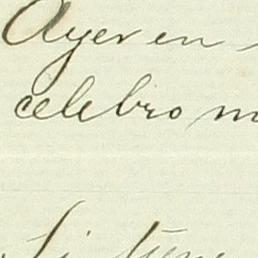 Ayer en
celebro
Si tiene